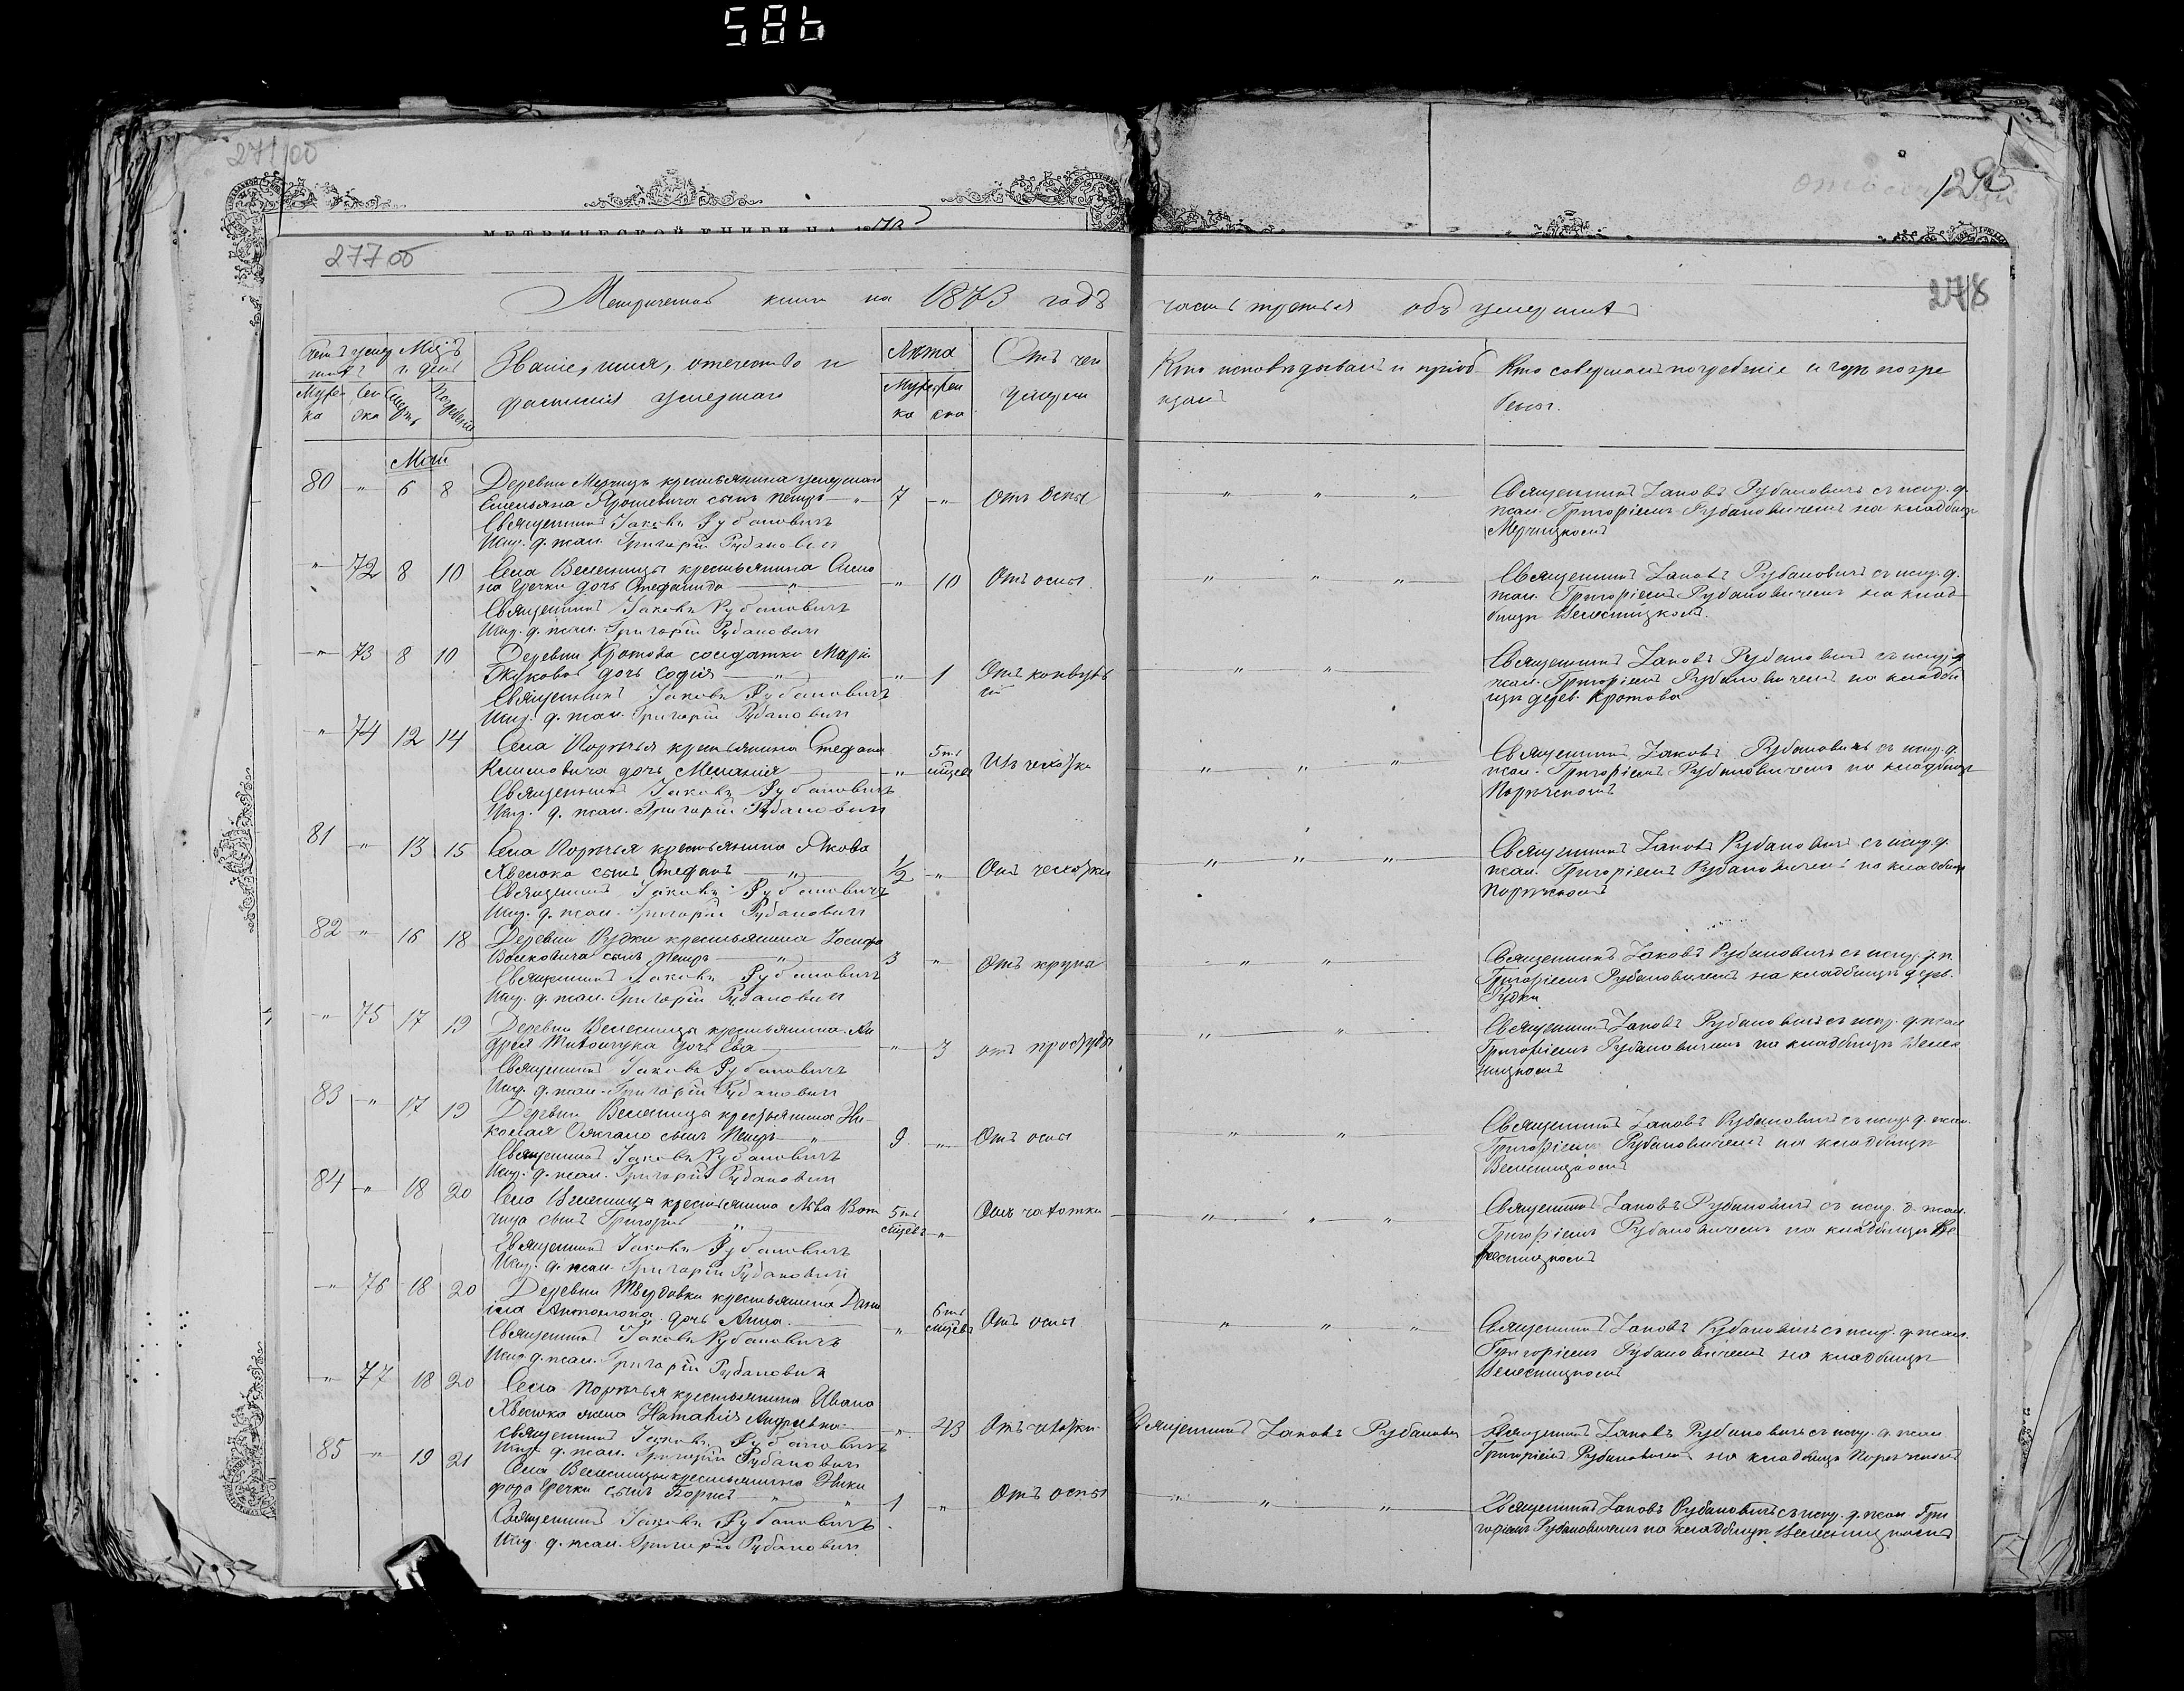 586
271 об
МЕТРИЧЕСКОЙ КНИГИ НА 1873
293
277 об
278
Метрической книги на 1873 годъ часть третья объ умершихъ
Счетъ умер
шихъ
Мѣсяцъ
и день
Званіе, имя, отечество и
фамилія умершаго
Лѣта
Отъ чего
умеръ
Кто исповѣдывалъ и пріоб
щалъ
Кто совершалъ погребеніе и гдѣ погре
бены.
Муже
ска
Жен
ска
Смерт.
Погребенія
Муже
ска
Жен
ска
Май
80 " 6 8 Деревни Мерчицъ крестьянина умершаго
Емельяна Ярошевича сынъ Петръ — " 7 " Отъ Оспы " " "
Священникъ Іаковъ Рубановичъ
Исп. д. псал. Григорій Рубановичъ
Священникъ Іаковъ Рубановичъ съ испр. д.
псал. Григоріемъ Рубановичемъ на кладбищѣ
Мерчицкомъ
" 72 8 10 Села Велесницы крестьянина Симо
на Гречки дочь Стефанида — " " 10 Отъ оспы " " "
Священникъ Іаковъ Рубановичъ
Испр. д. псал. Григорій Рубановичъ
Священникъ Іаковъ Рубановичъ съ испр. д.
псал. Григоріемъ Рубановичемъ на клад
бищѣ Велесницкомъ.
" 73 8 10 Деревни Кротова солдатки Маріи
Жуковой дочь Софія — " " 1 Отъ конвульс
ій " "
Священникъ Іаковъ Рубановичъ
Испр. д. псал. Григорій Рубановичъ
Священникъ Іаковъ Рубановичъ съ испр. д.
псал. Григоріемъ Рубановичемъ на кладби
щѣ дерев. Кротова
" 74 12 14 Села Порѣчья крестьянина Стефана
Климовича дочь Меланія — " 5ти мѣсцевъ " " "
Священникъ Іаковъ Рубановичъ
Испр. д. псал. Григорій Рубановичъ
Священникъ Іаковъ Рубановичъ съ испр. д.
псал. Григоріемъ Рубановичемъ на кладбищѣ
Порѣчскомъ
81 " 13 15 Села Порѣчья крестьянина Якова
Хвесюка сынъ Стефанъ — " 1/2 " Отъ " " "
Священникъ Іаковъ Рубановичъ
Испр. д. псал. Григорій Рубановичъ
Священникъ Іаковъ Рубановичъ съ испр. д.
псал. Григоріемъ Рубановичемъ на кладбищѣ
Порѣчскомъ
82 " 16 18 Деревни Рудки крестьянина Іосифа
Волковича сынъ Петръ — " 3 " Отъ крупа " " "
Священникъ Іаковъ Рубановичъ
Испр. д. псал. Григорій Рубановичъ
Священникъ Іаковъ Рубановичъ съ испр. д. п.
Григоріемъ Рубановичемъ на кладбищѣ дерев.
Рудки
" 75 17 19 Деревни Велесницы крестьянина Ан
дрея дочь Ева — " 3 отъ простуды " "
Священникъ Іаковъ Рубановичъ
Испр. д. псал. Григорій Рубановичъ
Священникъ Іаковъ Рубановичъ съ испр. д. псал
Григоріемъ Рубановичемъ на кладбищѣ Велес
ницкомъ
83 " 17 19 Деревни Велесницы крестьянина Ни-
колая сынъ Петръ — " 9 " Отъ оспы " "
Священникъ Іаковъ Рубановичъ
Испр. д. псал. Григорій Рубановичъ
Священникъ Іаковъ Рубановичъ съ испр. д. псал.
Григоріемъ Рубановичемъ на кладбищѣ
Велесницкомъ
84 " 18 20 Села Велесницы крестьянина Льва
сынъ Григорій " 5ти мѣсцевъ " Отъ чахотки " " "
Священникъ Іаковъ Рубановичъ
Испр. д. псал. Григорій Рубановичъ
Священникъ Іаковъ Рубановичъ съ испр. д. псал.
Григоріемъ Рубановичемъ на кладбищѣ Ве
лесницкомъ
" 76 18 20 Деревни Твердовки крестьянина Дани
іла дочь Анна. " 6ти мѣсцевъ Отъ оспы " " "
Священникъ Іаковъ Рубановичъ
Испр. д. псал. Григорій Рубановичъ
Священникъ Іаковъ Рубановичъ съ испр. д. псал.
Григоріемъ Рубановичемъ на кладбищѣ
Велесницкомъ
" 77 18 20 Села Порѣчья крестьянина Ивана
Хвесюка жена Наталія Андреевна — " 43 Отъ чахотки Священникъ Іаковъ Рубановичъ
Священникъ Іаковъ Рубановичъ
Испр. д. псал. Григорій Рубановичъ
Священникъ Іаковъ Рубановичъ съ испр. д. псал.
Григоріемъ Рубановичемъ на кладбищѣ Порѣчскомъ
85 " 19 21 Села Велесницы крестьянина Ники
фора Гречки сынъ Борисъ " " 1 " Отъ оспы " " "
Священникъ Іаковъ Рубановичъ
Испр. д. псал. Григорій Рубановичъ
Священникъ Іаковъ Рубановичъ съ испр. д. псал. Гри
горіемъ Рубановичемъ на кладбищѣ Велесницкомъ